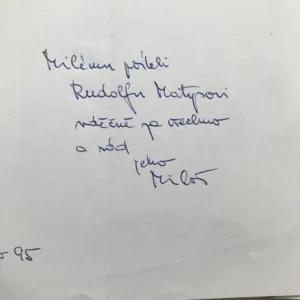 Milému příteli
Rudolfu Matysovi
vděčně za všechno
a rád
jeho
Miloš
95